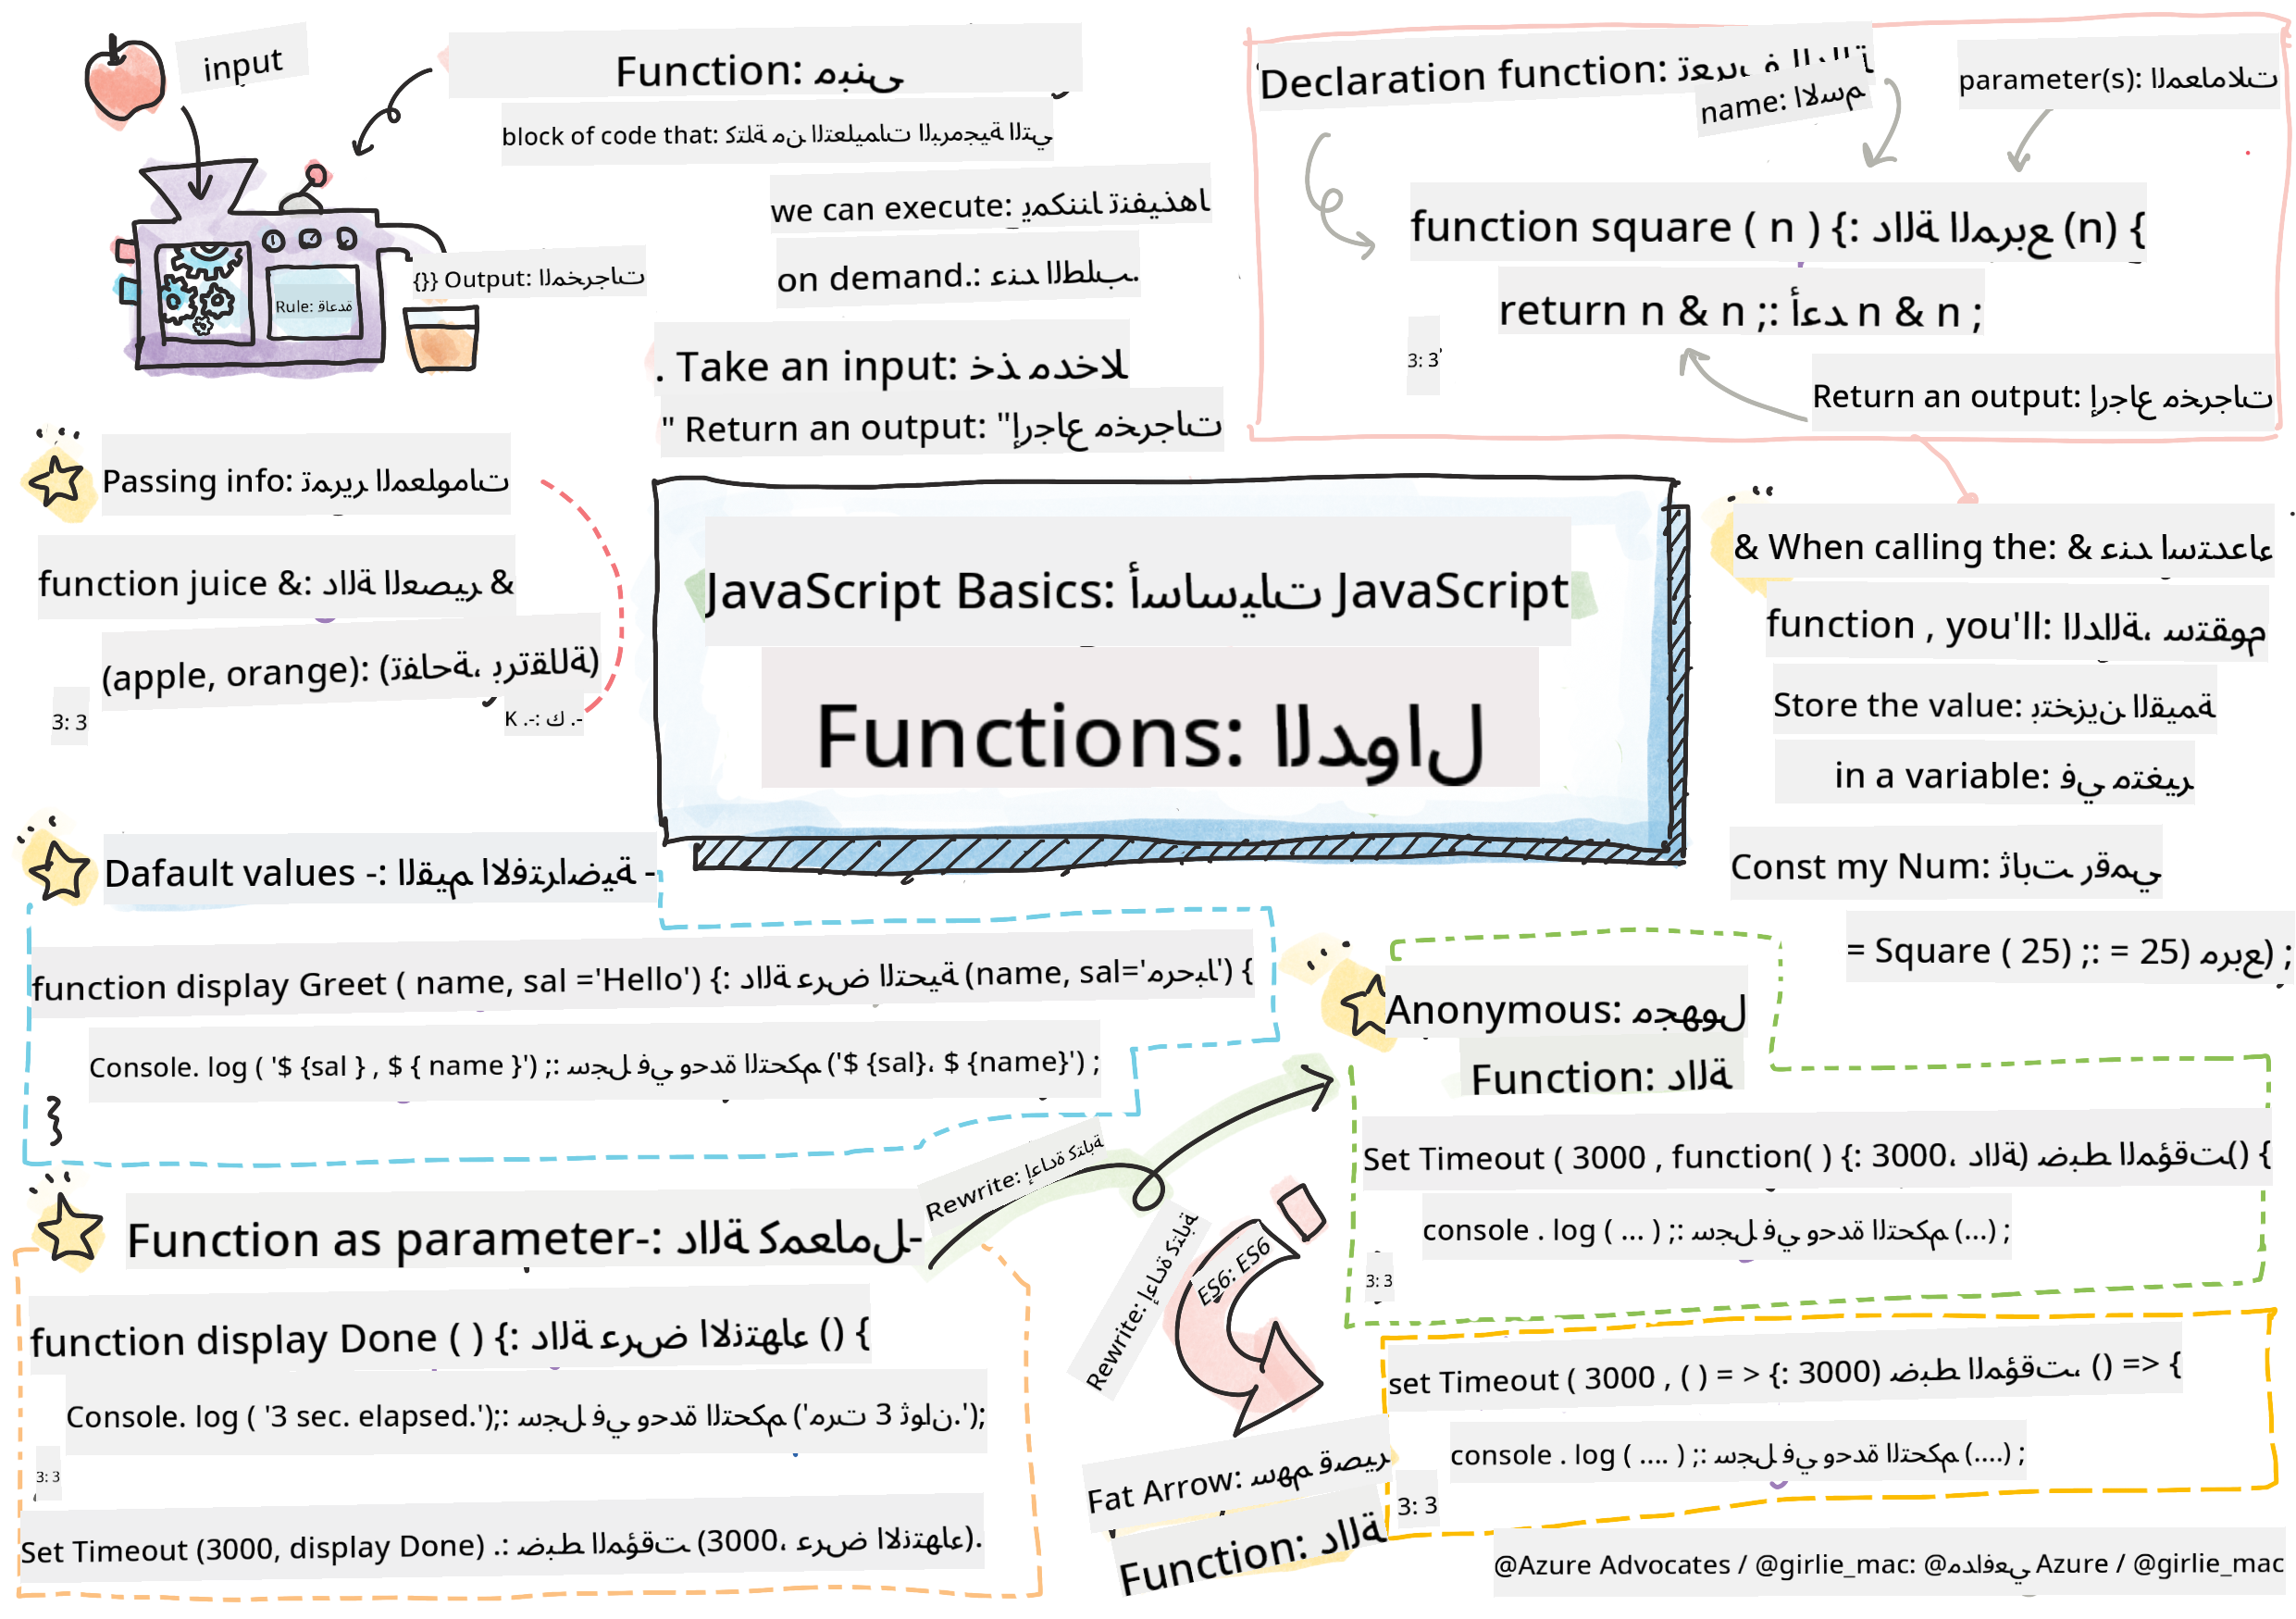 input
Function: مبنى
block of code that: كتلة من التعليمات البرمجية التي
we can execute: يمكننا تنفيذها
on demand.: عند الطلب.
{}} Output: المخرجات
Rule: قاعدة
. Take an input: خذ مدخلا
" Return an output: "إرجاع مخرجات
Declaration function: تعريف الدالة
name: الاسم
parameter(s): المعاملات
function square ( n ) {: دالة المربع (n) {
return n & n ;: أعد n & n ;
3: 3
Return an output: إرجاع مخرجات
Passing info: تمرير المعلومات
function juice &: دالة العصير &
(apple, orange): (تفاحة، برتقالة)
3: 3
K .-: ك .-
JavaScript Basics: أساسيات JavaScript
Functions: الدوال
& When calling the: & عند استدعاء
function , you'll: الدالة، ستقوم
Store the value: بتخزين القيمة
in a variable: في متغير
Const my Num: ثابت رقمي
= Square ( 25) ;: = مربع (25) ;
Dafault values -: القيم الافتراضية -
function display Greet ( name, sal ='Hello') {: دالة عرض التحية (name, sal='مرحبا') {
Console. log ( '$ {sal } , $ { name }') ;: سجل في وحدة التحكم ('$ {sal}، $ {name}') ;
Function as parameter-: دالة كمعامل-
Rewrite: إعادة كتابة
function display Done ( ) {: دالة عرض الانتهاء () {
Console. log ( '3 sec. elapsed.');: سجل في وحدة التحكم ('مرت 3 ثوان.');
3: 3
Set Timeout (3000, display Done) .: ضبط المؤقت (3000، عرض الانتهاء).
Anonymous: مجهول
Function: دالة
Set Timeout ( 3000 , function( ) {: ضبط المؤقت (3000، دالة() {
console . log ( ... ) ;: سجل في وحدة التحكم (...) ;
3: 3
Rewrite: إعادة كتابة
ES6: ES6
Fat Arrow: سهم قصير
Function: دالة
set Timeout ( 3000 , ( ) = > {: ضبط المؤقت (3000، () => {
console . log ( .... ) ;: سجل في وحدة التحكم (....) ;
3: 3
@Azure Advocates / @girlie_mac: @مدافعي Azure / @girlie_mac